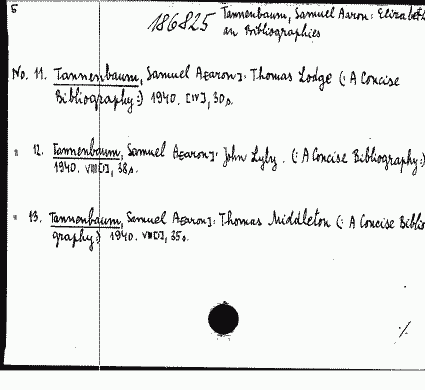 5
186825 Tannenbaum, Samuel Aaron: Elizabeth
an Bibliographies
No. 11. Tannenbaum, Samuel A[aron]: Thomas Lodge (: A Concise
Bibliography:) 1940. [IV], 30 s.
" 12. Tannenbaum, Samuel A[aron]: John Lyly. (: A Concise Bibliography:)
1940. VIII[!], 38 s.
" 13. Tannenbaum, Samuel A[aron]: Thomas Middleton (: A Concise Biblio
graphy:) 1940. VIII[!], 35 s.
./.